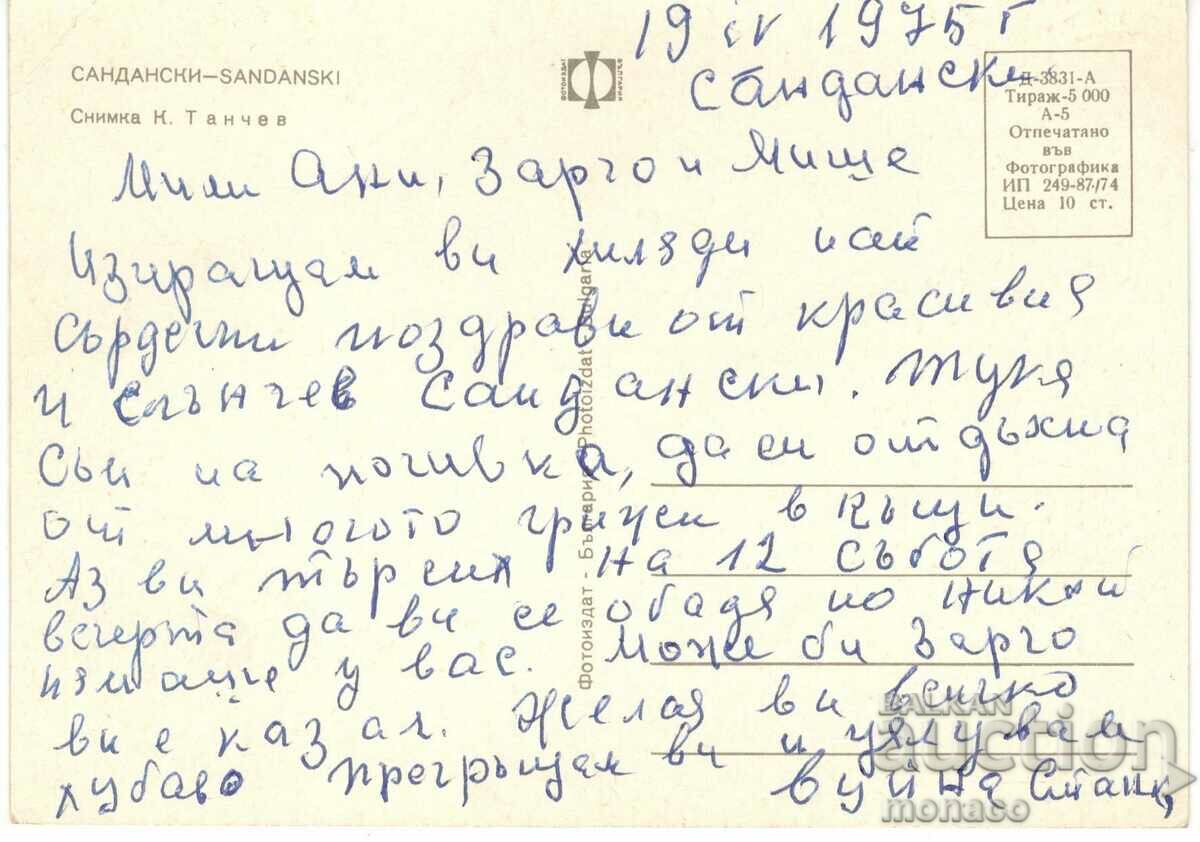 19 IV 1975 г
Сандански
САНДАНСКИ—SANDANSKI
Снимка К. Танчев
ФОТОИЗДАТ
БЪЛГАРИЯ
Д-3831-А
Тираж-5 000
А-5
Отпечатано
във
Фотографика
ИП 249-87/74
Цена 10 ст.
Мили Ани, Зарго и Мише
Изпращам ви хиляди най
сърдечни поздрави от красивия
и слънчев Сандански. Тукя
съм на почивка, да си отдъхна
от многото грижи в къщи.
Аз ви търсих на 12 събота
вечерта да ви се обадя но никой
нямаше у вас. Може би Зарго
ви е казал. Желая ви всичко
хубаво прегръщам ви и цялувам
вуйна Станка
Фотоиздат - България Photoizdat Bulgaria
BALKAN
auction
monaco